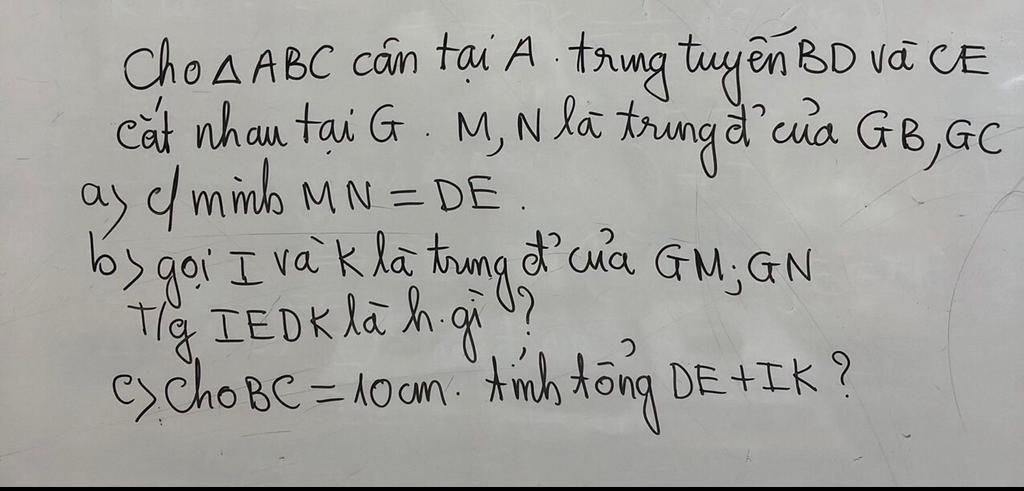 Cho △ ABC cân tại A. trung tuyến BD và CE
cắt nhau tại G. M, N là trung đ' của GB, GC
a) c/minh MN = DE.
b) gọi I và K là trung đ' của GM; GN
T/g IEDK là h.gì?
c) Cho BC = 10cm. tính tổng DE + IK?